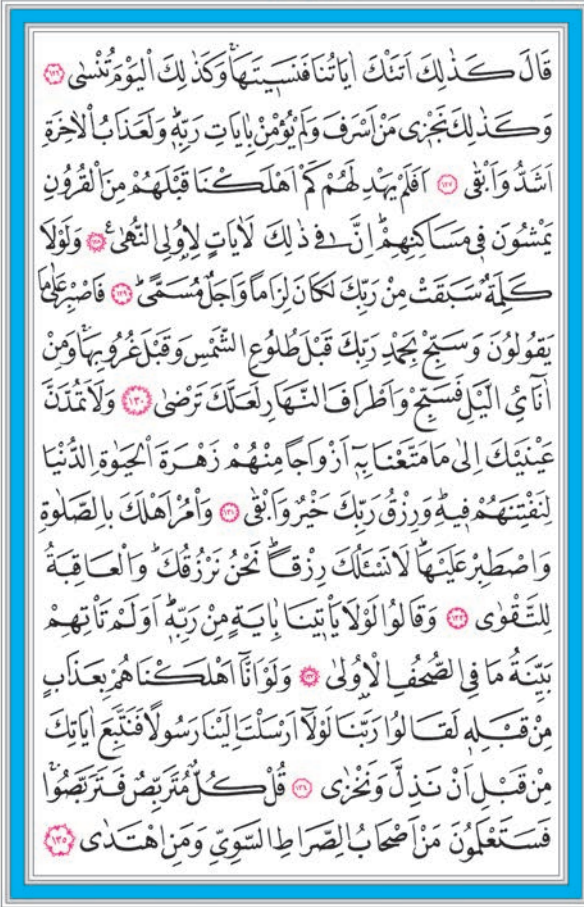 قَالَ كَذٰلِكَ اَتَتْكَ اٰيَاتُنَا فَنَسٖيتَهَاۚ وَكَذٰلِكَ الْيَوْمَ تُنْسٰى ﴿١٢٦﴾
وَكَذٰلِكَ نَجْزٖى مَنْ اَسْرَفَ وَلَمْ يُؤْمِنْ بِاٰيَاتِ رَبِّهٖؕ وَلَعَذَابُ الْاٰخِرَةِ
اَشَدُّ وَاَبْقٰى ﴿١٢٧﴾ اَفَلَمْ يَهْدِ لَهُمْ كَمْ اَهْلَكْنَا قَبْلَهُمْ مِنَ الْقُرُونِ
يَمْشُونَ فٖى مَسَاكِنِهِمْؕ اِنَّ فٖى ذٰلِكَ لَاٰيَاتٍ لِاُولِى النُّهٰىࣖ ﴿١٢٨﴾ وَلَوْلَا
كَلِمَةٌ سَبَقَتْ مِنْ رَبِّكَ لَكَانَ لِزَامًا وَاَجَلٌ مُسَمًّىؕ ﴿١٢٩﴾ فَاصْبِرْ عَلٰى مَا
يَقُولُونَ وَسَبِّحْ بِحَمْدِ رَبِّكَ قَبْلَ طُلُوعِ الشَّمْسِ وَقَبْلَ غُرُوبِهَاۚ وَمِنْ
اٰنَٓائِ الَّيْلِ فَسَبِّحْ وَاَطْرَافَ النَّهَارِ لَعَلَّكَ تَرْضٰى ﴿١٣٠﴾ وَلَا تَمُدَّنَّ
عَيْنَيْكَ اِلٰى مَا مَتَّعْنَا بِهٖٓ اَزْوَاجًا مِنْهُمْ زَهْرَةَ الْحَيٰوةِ الدُّنْيَا
لِنَفْتِنَهُمْ فٖيهِؕ وَرِزْقُ رَبِّكَ خَيْرٌ وَاَبْقٰى ﴿١٣١﴾ وَأْمُرْ اَهْلَكَ بِالصَّلٰوةِ
وَاصْطَبِرْ عَلَيْهَاؕ لَا نَسْـَٔلُكَ رِزْقًاؕ نَحْنُ نَرْزُقُكَؕ وَالْعَاقِبَةُ
لِلتَّقْوٰى ﴿١٣٢﴾ وَقَالُوا لَوْلَا يَأْتٖينَا بِاٰيَةٍ مِنْ رَبِّهٖؕ اَوَلَمْ تَأْتِهِمْ
بَيِّنَةُ مَا فِى الصُّحُفِ الْاُو۫لٰى ﴿١٣٣﴾ وَلَوْ اَنَّٓا اَهْلَكْنَاهُمْ بِعَذَابٍ
مِنْ قَبْلِهٖ لَقَالُوا رَبَّنَا لَوْلَٓا اَرْسَلْتَ اِلَيْنَا رَسُولًا فَنَتَّبِعَ اٰيَاتِكَ
مِنْ قَبْلِ اَنْ نَذِلَّ وَنَخْزٰى ﴿١٣٤﴾ قُلْ كُلٌّ مُتَرَبِّصٌ فَتَرَبَّصُواۚ
فَسَتَعْلَمُونَ مَنْ اَصْحَابُ الصِّرَاطِ السَّوِىِّ وَمَنِ اهْتَدٰى ﴿١٣٥﴾